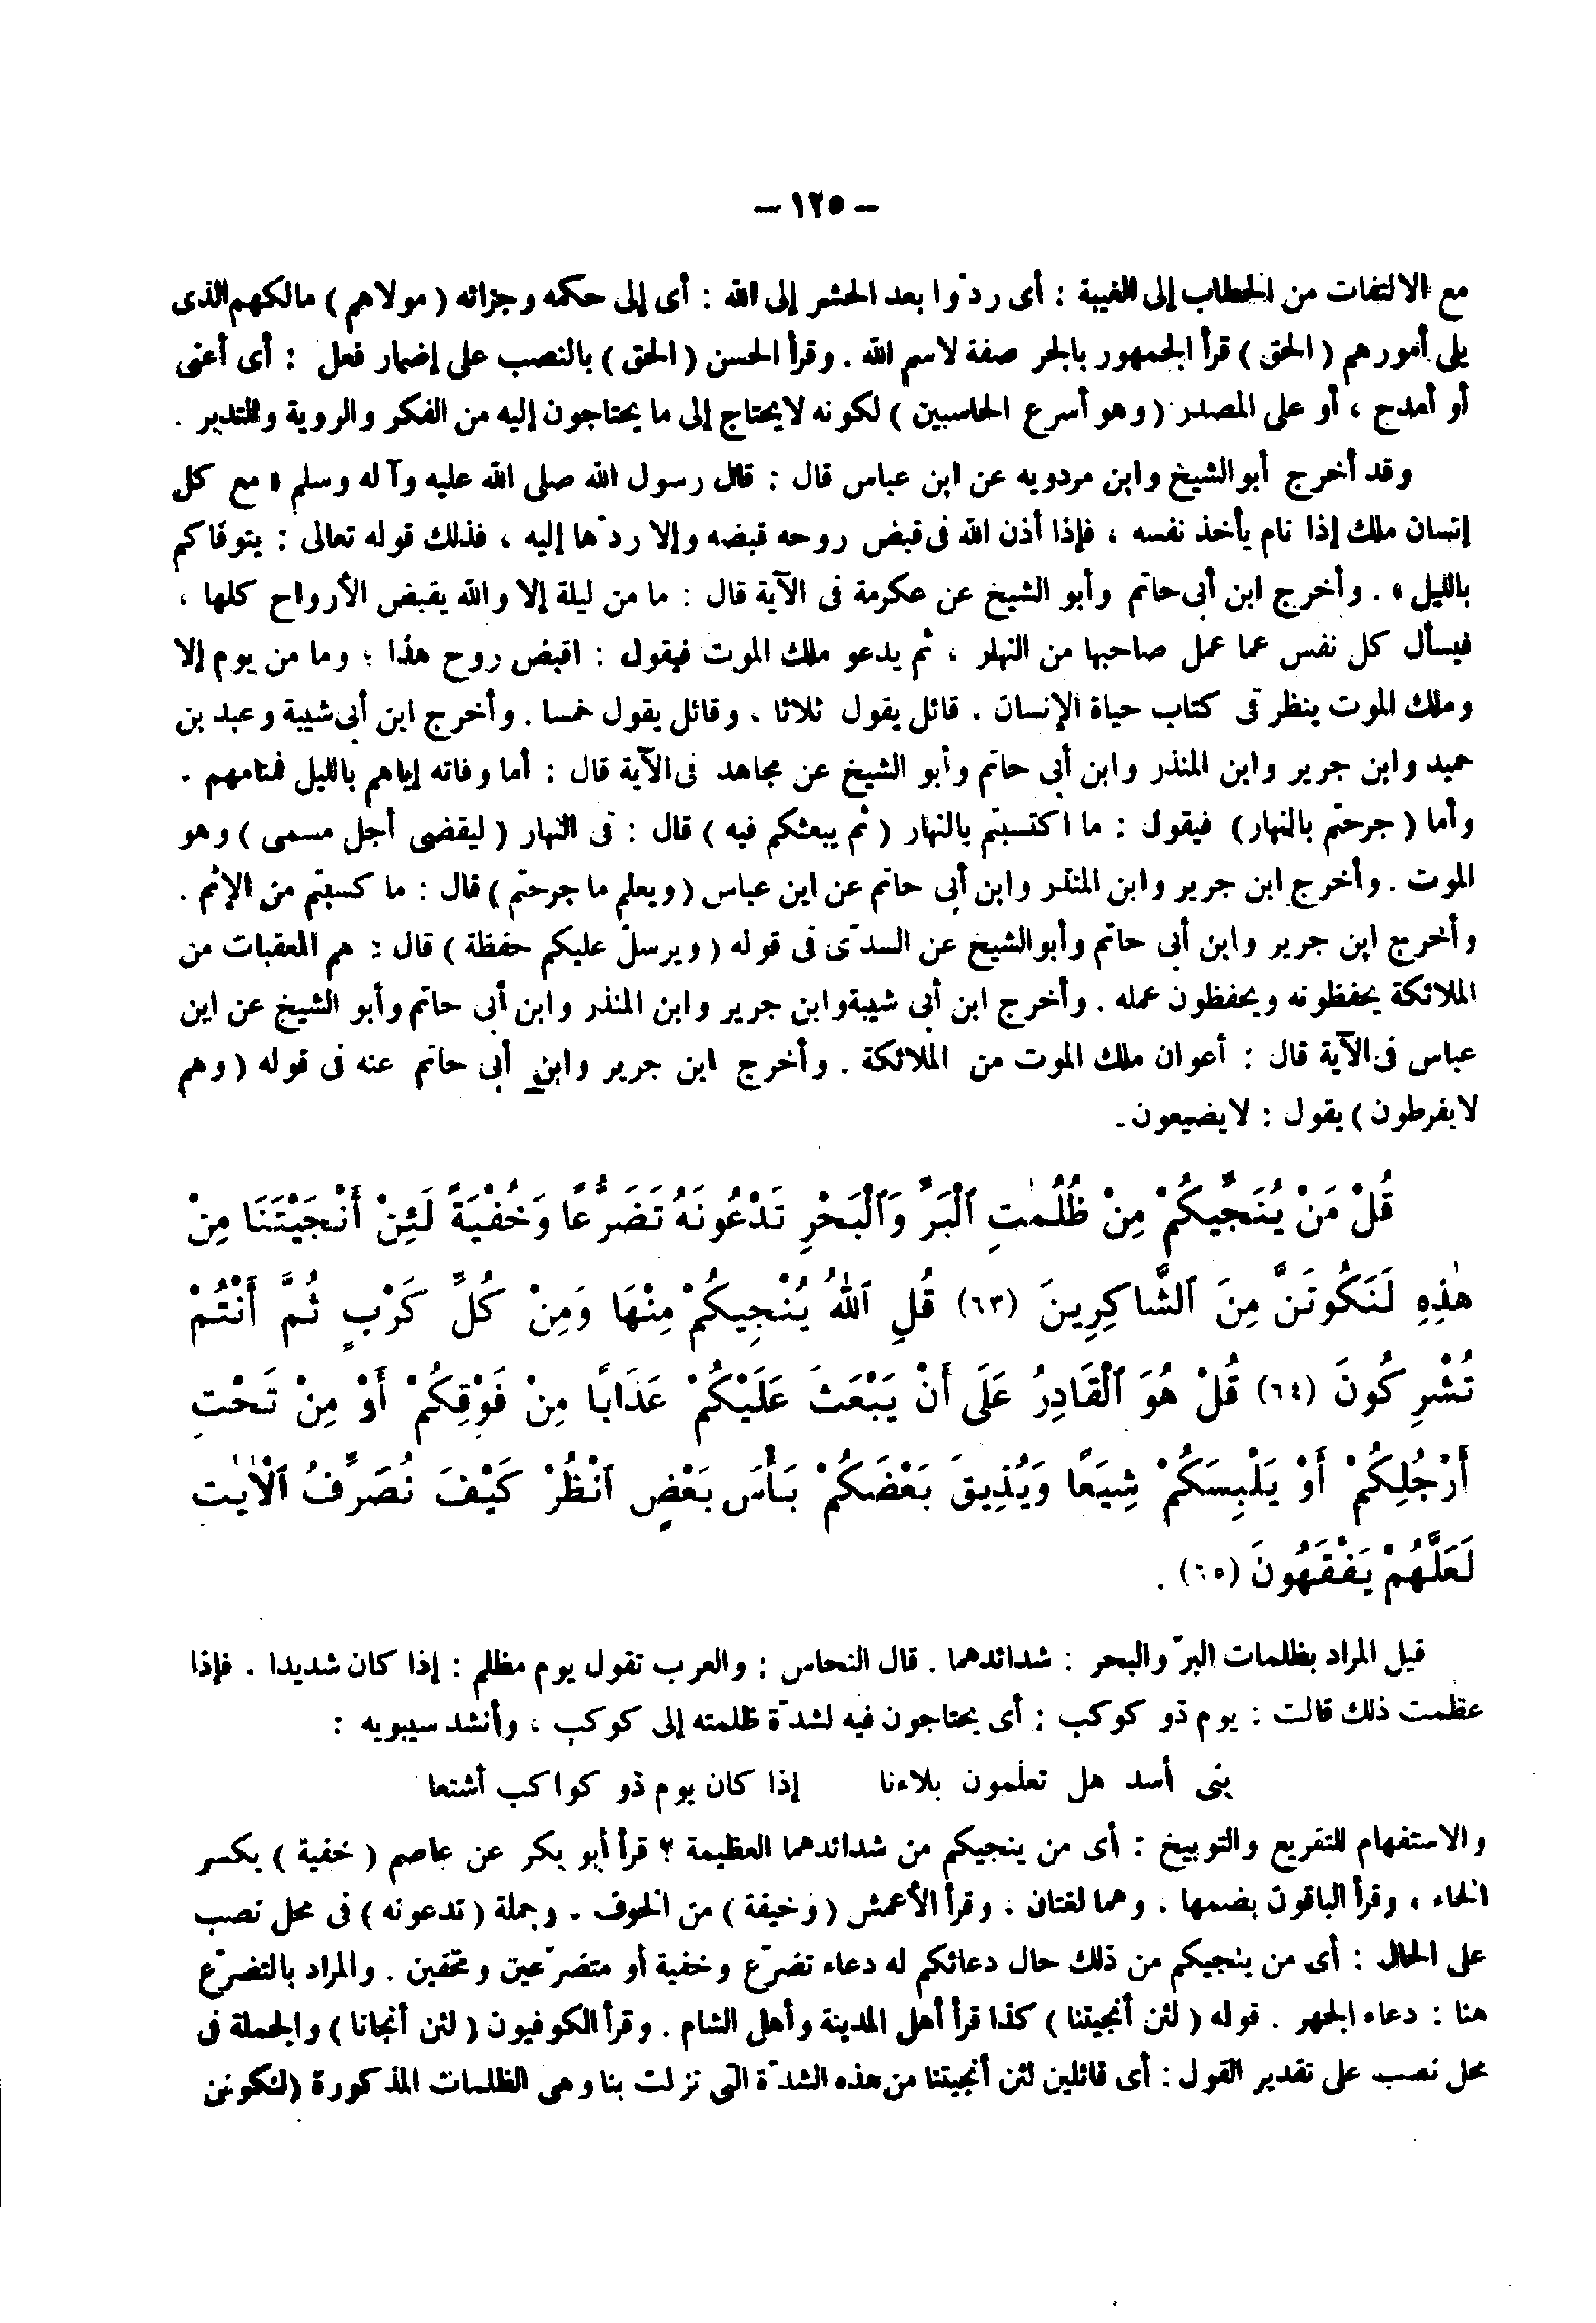 – ١٢٥ –
مع الالتفات من الخطاب إلى الغيبة : أى ردّوا بعد الحشر إلى الله : أى إلى حكمه وجزائه ( مولاهم ) مالكهم الذى
يلى أمورهم ( الحق ) قرأ الجمهور بالجر صفة لاسم الله . وقرأ الحسن ( الحق ) بالنصب على إضمار فعل : أى أعنى
أو أمدح ، أو على المصدر ( وهو أسرع الحاسبين ) لكونه لا يحتاج إلى ما يحتاجون إليه من الفكر والروية والتدبر .
وقد أخرج أبو الشيخ وابن مردويه عن ابن عباس قال : قال رسول الله صلى الله عليه وآله وسلم « مع كل
إنسان ملك إذا نام يأخذ نفسه ، فإذا أذن الله فى قبض روحه قبضه وإلا ردّها إليه ، فذلك قوله تعالى : يتوفاكم
بالليل » . وأخرج ابن أبى حاتم وأبو الشيخ عن عكرمة فى الآية قال : ما من ليلة إلا والله يقبض الأرواح كلها ،
فيسأل كل نفس عما عمل صاحبها من النهار ، ثم يدعو ملك الموت فيقول : اقبض روح هذا ؛ وما من يوم إلا
وملك الموت ينظر فى كتاب حياة الإنسان . قائل يقول ثلاثا ، وقائل يقول خمسا . وأخرج ابن أبى شيبة وعبد بن
حميد وابن جرير وابن المنذر وابن أبى حاتم وأبو الشيخ عن مجاهد فى الآية قال : أما وفاته إياهم بالليل فمنامهم .
وأما ( جرحتم بالنهار ) فيقول : ما اكتسبتم بالنهار ( ثم يبعثكم فيه ) قال : فى النهار ( ليقضى أجل مسمى ) وهو
الموت . وأخرج ابن جرير وابن المنذر وابن أبى حاتم عن ابن عباس ( ويعلم ما جرحتم ) قال : ما كسبتم من الإثم .
وأخرج ابن جرير وابن أبى حاتم وأبو الشيخ عن السدّى فى قوله ( ويرسل عليكم حفظة ) قال : هم المعقبات من
الملائكة يحفظونه ويحفظون عمله . وأخرج ابن أبى شيبة وابن جرير وابن المنذر وابن أبى حاتم وأبو الشيخ عن ابن
عباس فى الآية قال : أعوان ملك الموت من الملائكة . وأخرج ابن جرير وابن أبى حاتم عنه فى قوله ( وهم
لا يفرطون ) يقول : لا يضيعون .
قُلْ مَنْ يُنَجِّيكُمْ مِنْ ظُلُمٰتِ ٱلْبَرِّ وَٱلْبَحْرِ تَدْعُونَهُ تَضَرُّعًا وَخُفْيَةً لَئِنْ أَنْجَيْتَنَا مِنْ
هٰذِهِ لَنَكُونَنَّ مِنَ ٱلشَّاكِرِينَ (٦٣) قُلِ ٱللهُ يُنْجِيكُمْ مِنْهَا وَمِنْ كُلِّ كَرْبٍ ثُمَّ أَنْتُمْ
تُشْرِكُونَ (٦٤) قُلْ هُوَ ٱلْقَادِرُ عَلَى أَنْ يَبْعَثَ عَلَيْكُمْ عَذَابًا مِنْ فَوْقِكُمْ أَوْ مِنْ تَحْتِ
أَرْجُلِكُمْ أَوْ يَلْبِسَكُمْ شِيَعًا وَيُذِيقَ بَعْضَكُمْ بَأْسَ بَعْضٍ ٱنْظُرْ كَيْفَ نُصَرِّفُ ٱلْآيٰتِ
لَعَلَّهُمْ يَفْقَهُونَ (٦٥) .
قيل المراد بظلمات البرّ والبحر : شدائدهما . قال النحاس : والعرب تقول يوم مظلم : إذا كان شديدا . فإذا
عظمت ذلك قالت : يوم ذو كوكب : أى يحتاجون فيه لشدّة ظلمته إلى كوكب ، وأنشد سيبويه :
بنى أسد هل تعلمون بلاءنا إذا كان يوم ذو كواكب أشنعا
والاستفهام للتقريع والتوبيخ : أى من ينجيكم من شدائدهما العظيمة ؟ قرأ أبو بكر عن عاصم ( خفية ) بكسر
الخاء ، وقرأ الباقون بضمها ، وهما لغتان ، وقرأ الأعمش ( وخيفة ) من الخوف . وجملة ( تدعونه ) فى محل نصب
على الحال : أى من ينجيكم من ذلك حال دعائكم له دعاء تضرّع وخفية أو متضرّعين ومخفين . والمراد بالتضرّع
هنا : دعاء الجهر . قوله ( لئن أنجيتنا ) كذا قرأ أهل المدينة وأهل الشام . وقرأ الكوفيون ( لئن أنجانا ) والجملة فى
محل نصب على تقدير القول : أى قائلين لئن أنجيتنا من هذه الشدّة التى نزلت بنا وهى الظلمات المذكورة ( لنكونن